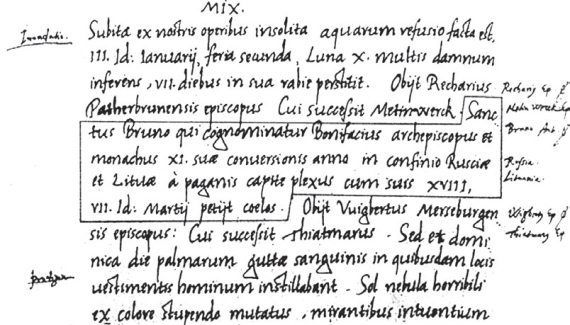 MIX.
Subita ex nostris operibus insolita aquarum refusio facta est,
III. Id: Ianuarij, feria secunda, Luna X. multis damnum
inferens, VII. diebus in sua rabie perstitit. Obijt Recharius
Patherbrunensis episcopus Cui successit Meinwerck. Sanc
tus Bruno qui cognominatur Bonifacius archepiscopus et
monachus XI. suæ conversionis anno in confinio Rusciæ
et Lituæ à paganis capite plexus cum suis XVIII,
VII. Id: Martij petijt coelos. Obijt Vuigbertus Merseburgen
sis episcopus: Cui successit Thiatmarus. Sed et domi
nica die palmarum guttæ sanguinis in quibusdam locis
vestimentis hominum instillabant. Sol nebula horribili
ex colore stupendo mutatus, mirantibus intuentium
Bruno
Russia.
Lituania.